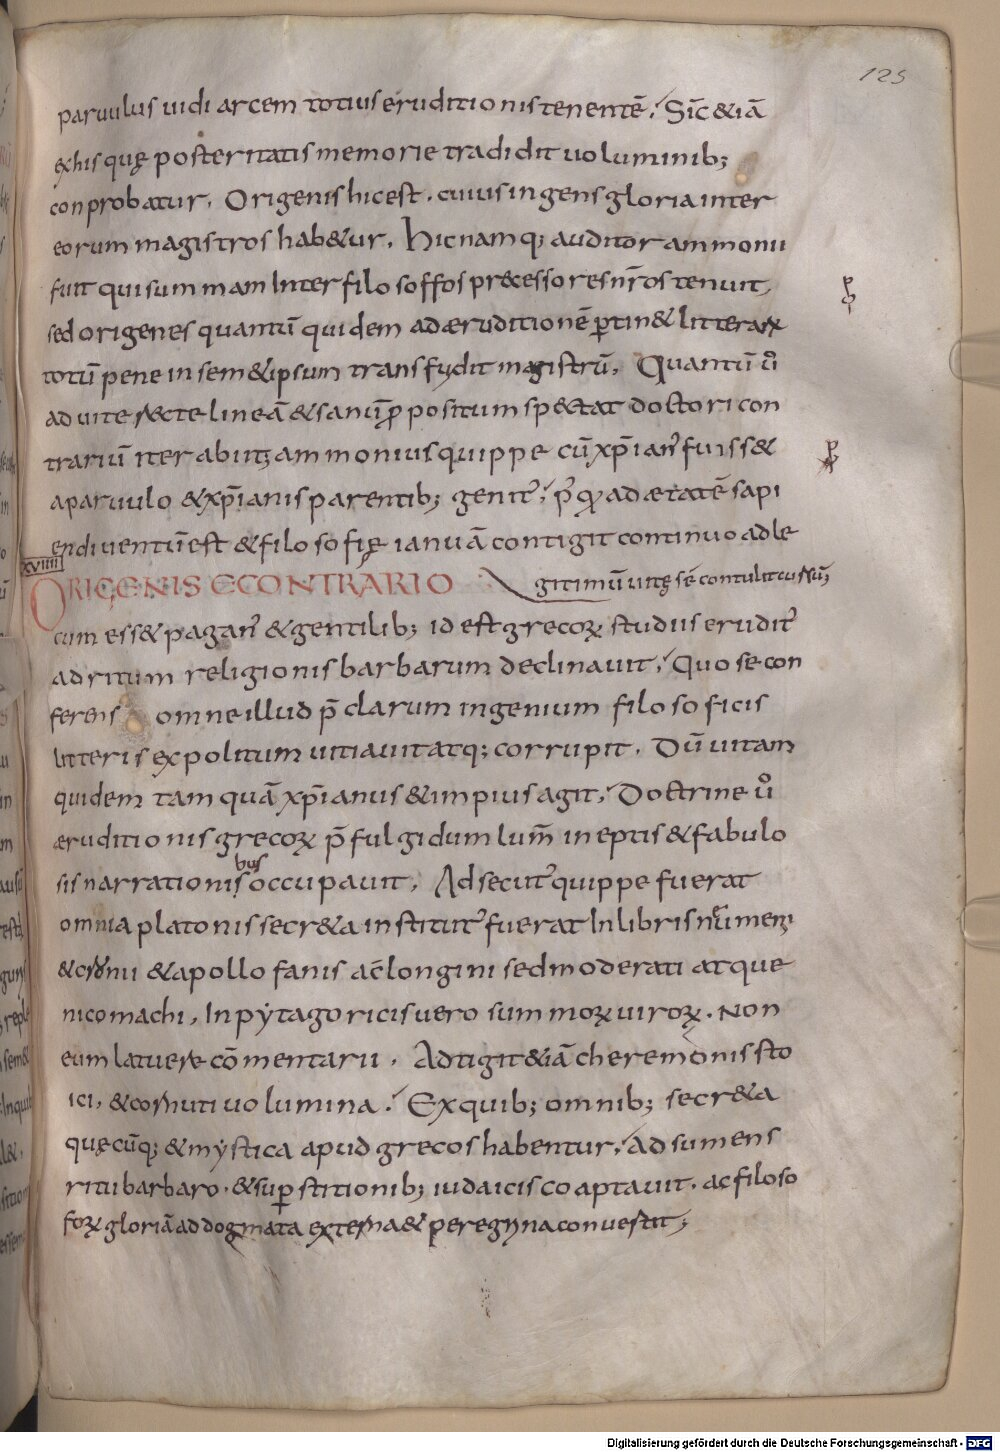 125
paruulus uidi arcem totius eruditionis tenentē. Sic̄ &iā
exhis quę posteritatis memorie tradidit uoluminib;
conprobatur. Origenis hic est. cuius ingens gloria inter
eorum magistros hab&ur. hic namq; auditor ammonii
fuit qui summam Inter filosoffos pręcessores nr̄os tenuit,
sed origenes quantū quidem ad æruditionē ꝑtin& litterarꝝ
totū pene in sem&ipsum transfudit magistrū. Quantū ū
ad uite recte lineā &sanū ꝓpositum spectat doctori con
trariū iter abiit; ammonius quippe cū xp̄ian᾽ fuiss&
aparuulo &xp̄ianis parentib; genit᾽, p᾽ quā ad ætatē sapi
endi uentū est &filosofię ianuā contigit continuo adle
gitimū uitę sē contulit cursū;
xviiii
ORIGENIS ECONTRARIO
cum ess& pagan᾽ &gentilib; id est grecoꝝ studiis erudit᾽
ad ritum religionis barbarum declinauit. Quo se con
ferens omne illud p̄clarum ingenium filosoficis
litteris expolitum uitiauit atq; corrupit. Dū uitam
quidem tam quā xp̄ianus &impius agit. Doctrine ū
æruditionis grecoꝝ p̄fulgidum lum̄ ineptis &fabulo
sis narrationis occupauit. Adsecut᾽ quippe fuerat
bus
omnia platonis secr&a instituit᾽ fuerat In libris numeni
&cronii &apollofanis ac̄ longini sed moderati atque
nicomachi, In pytagoricis uero summoꝝ uiroꝝ. Non
eum latuere cōmentarii. Adtigit &iā cheremonis sto
ici, &cornuti uolumina. Ex quib; omnib; secr&a
quęcūq; &mystica apud grecos habentur, Adsumens
ritu barbaro. &suꝑstitionib; iudaicis coaptauit. ac filoso
foꝝ gloriā ad dogmata externa & peregyna conuertit;
Digitalisierung gefördert durch die Deutsche Forschungsgemeinschaft - DFG